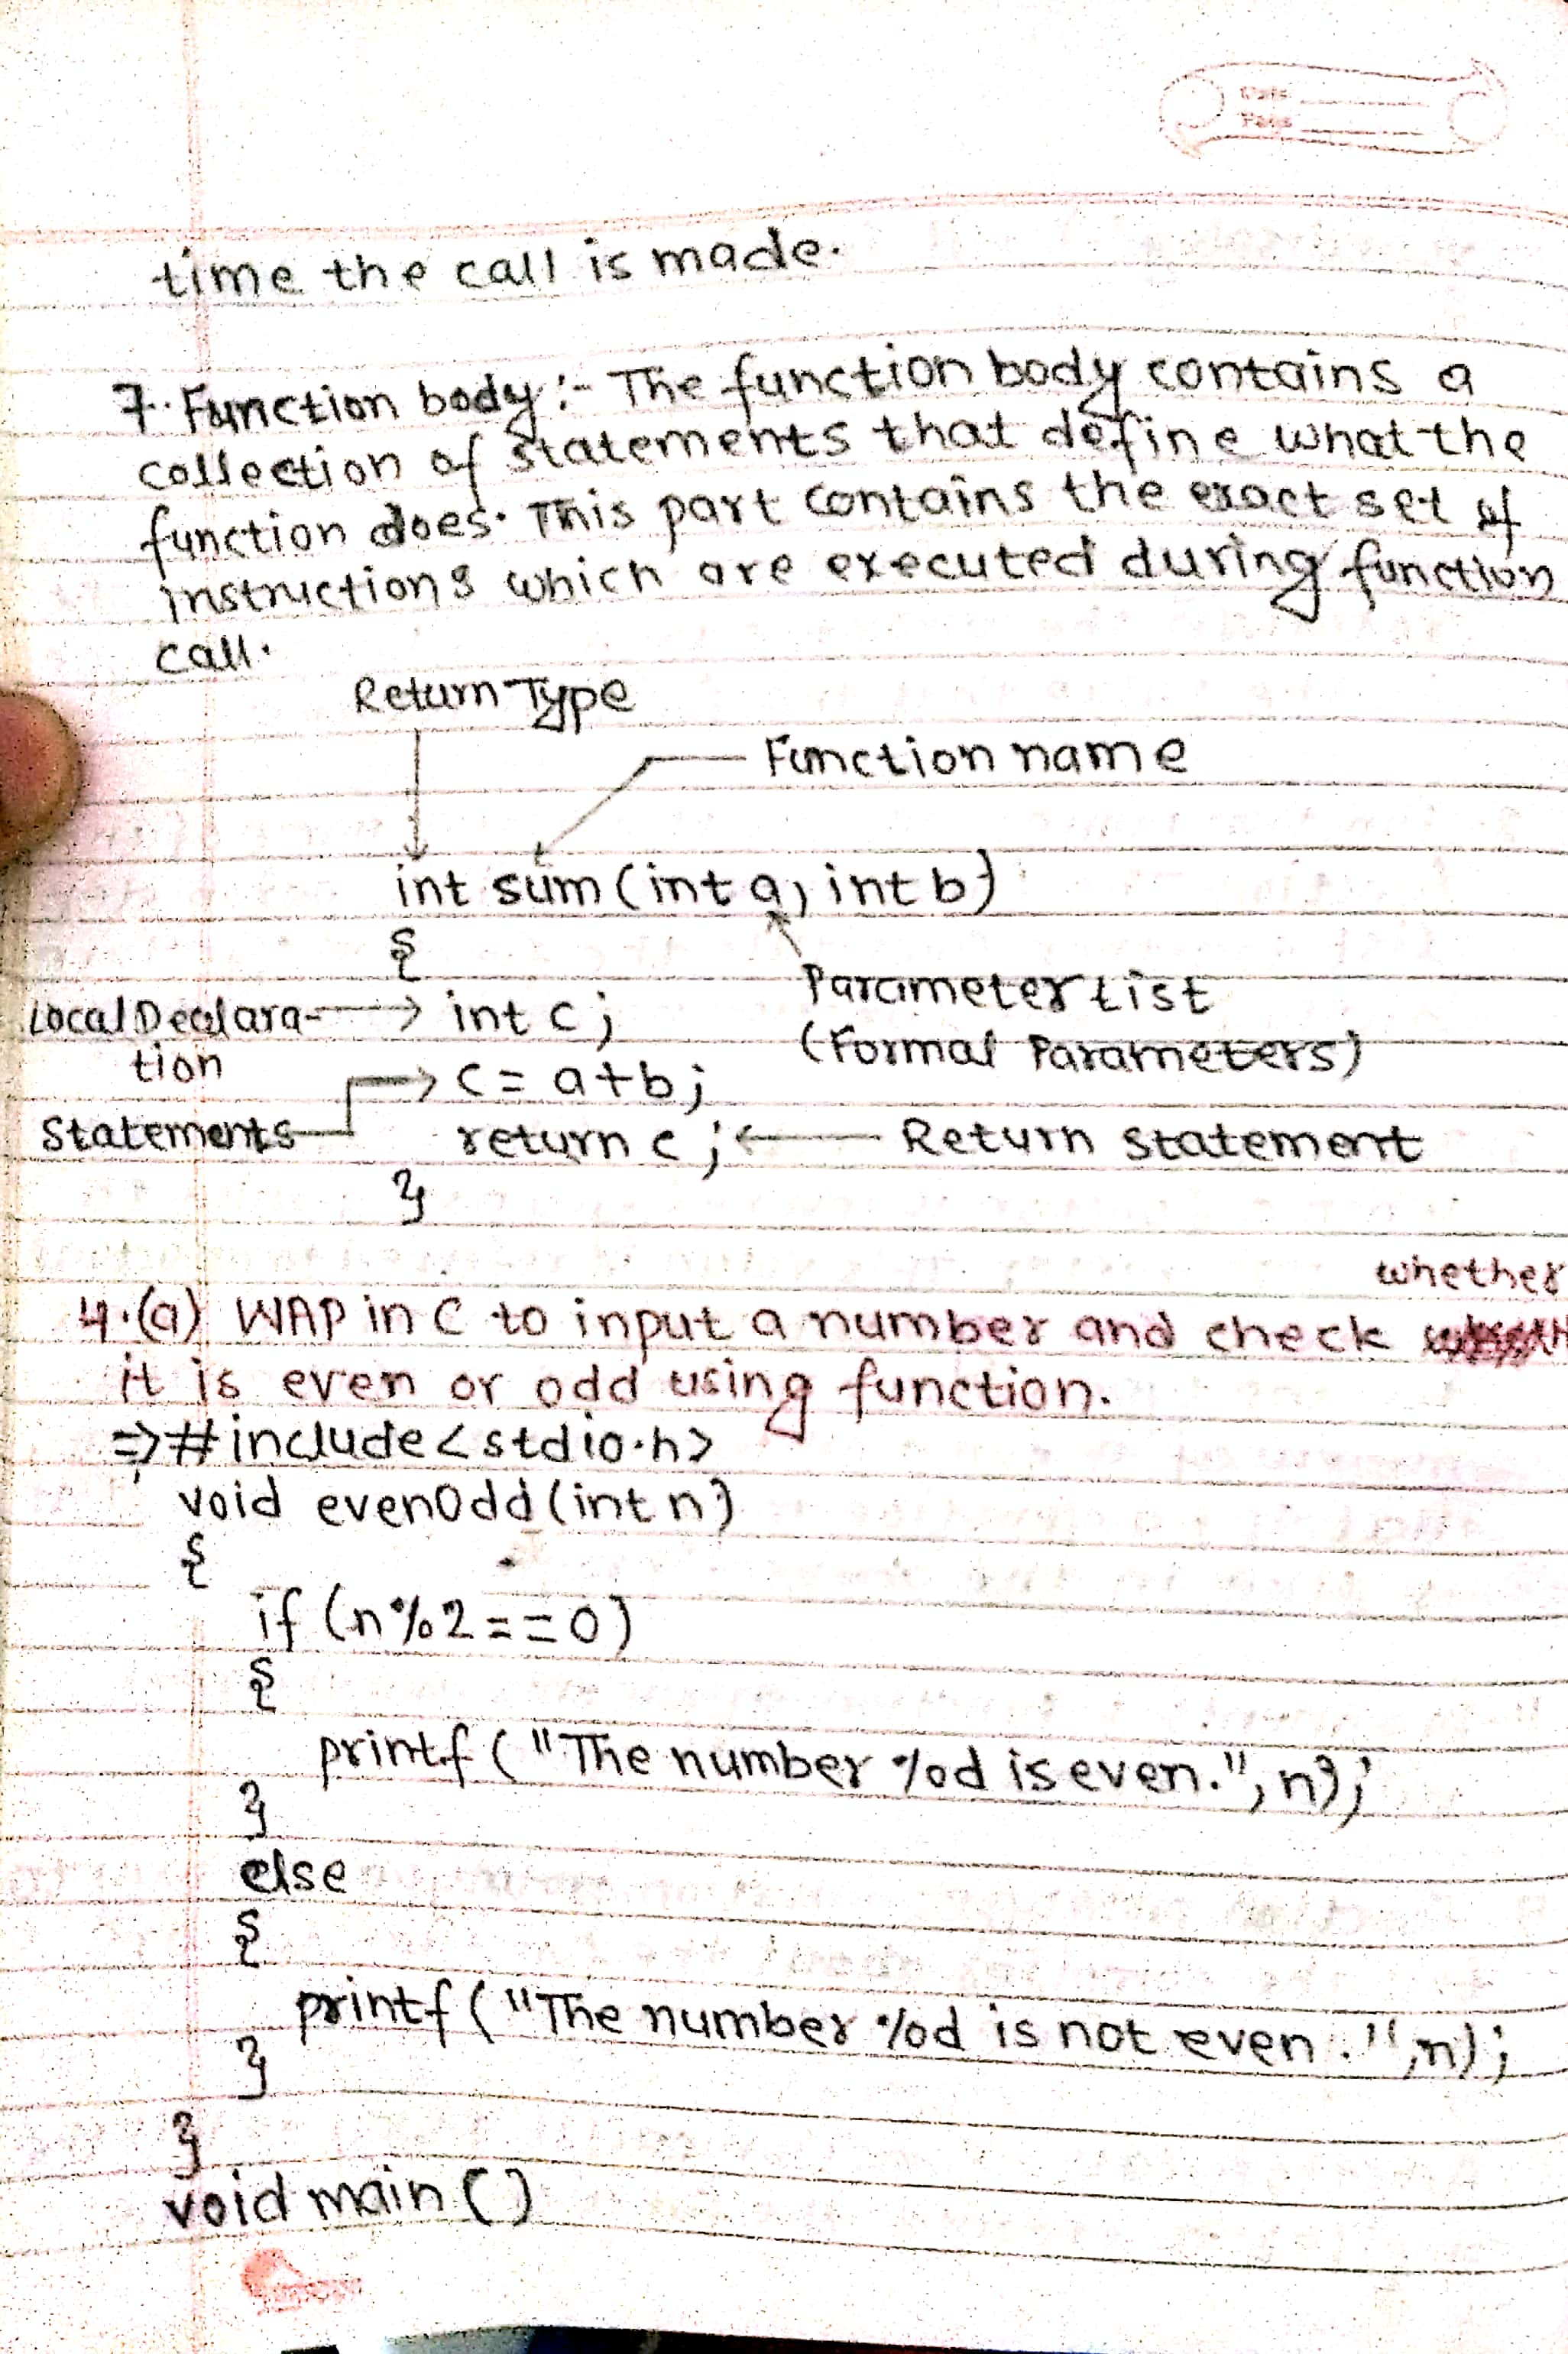 Date
Page
time the call is made.
7. Function body :- The function body contains a
collection of statements that define what the
function does. This part contains the exact set of
instructions which are executed during function
call.
Return Type
Function name
int sum (int a, int b)
{
Local Declara-
tion
int c ;
Parameter List
(Formal Parameters)
c = a+b ;
Statements
return c ;
Return statement
}
whether
4.(a) WAP in C to input a number and check
it is even or odd using function.
⇒ #include<stdio.h>
void evenOdd (int n)
{
if (n%2==0)
{
printf ("The number %d is even.", n);
}
else
{
printf ("The number %d is not even .", n);
}
}
void main ()